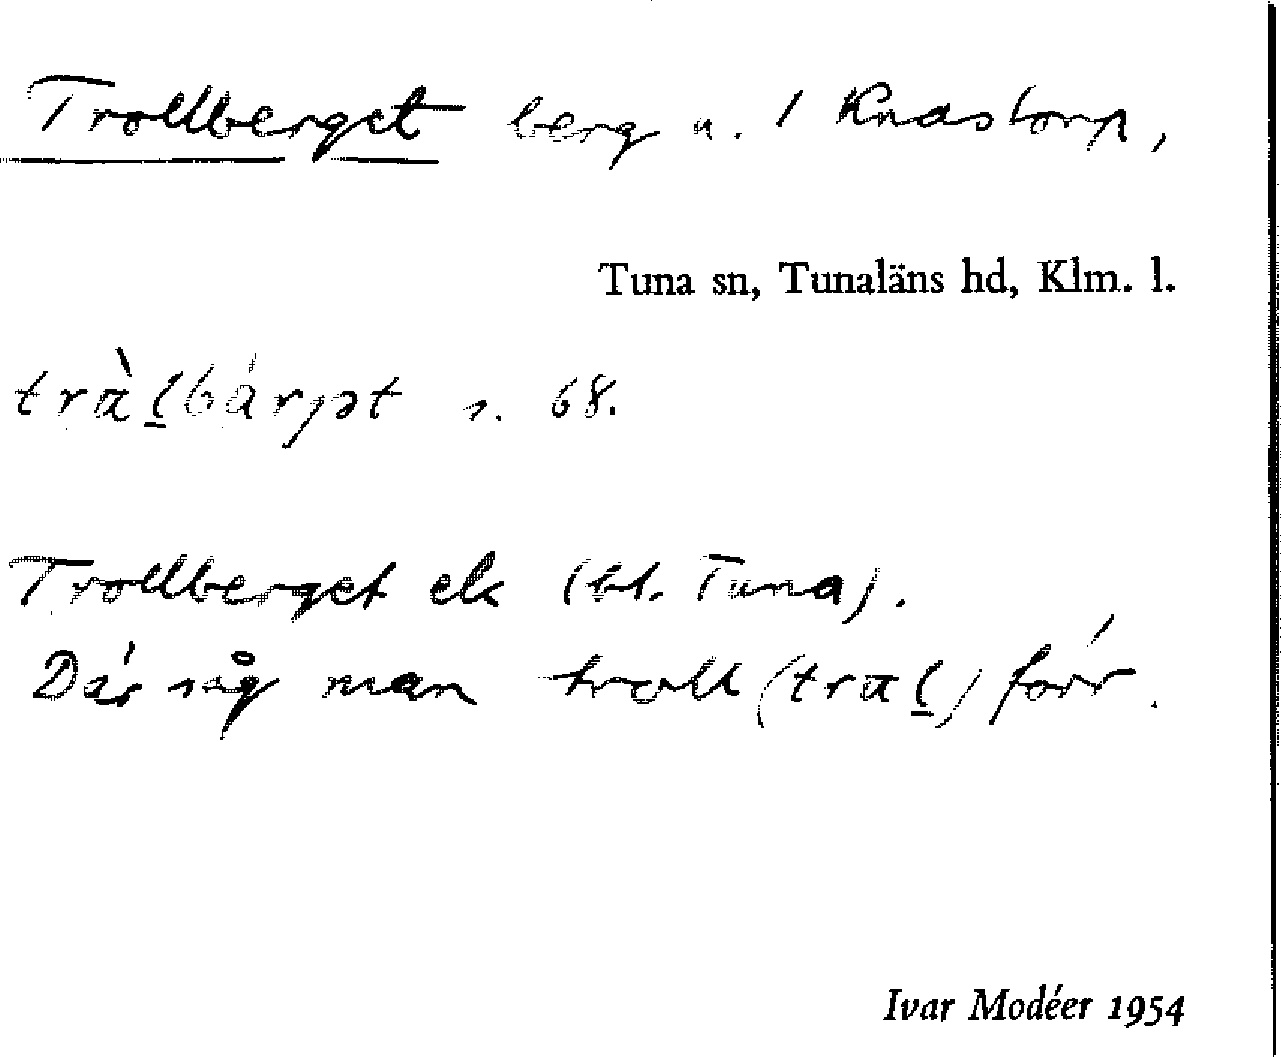 Trollberget berg u. 1 Knastorp,
Tuna sn, Tunaläns hd, Klm. l.
s. 68.
Trollberget ek (bl. Tuna).
Där såg man troll (traɩ̲) förr.
Ivar Modéer 1954